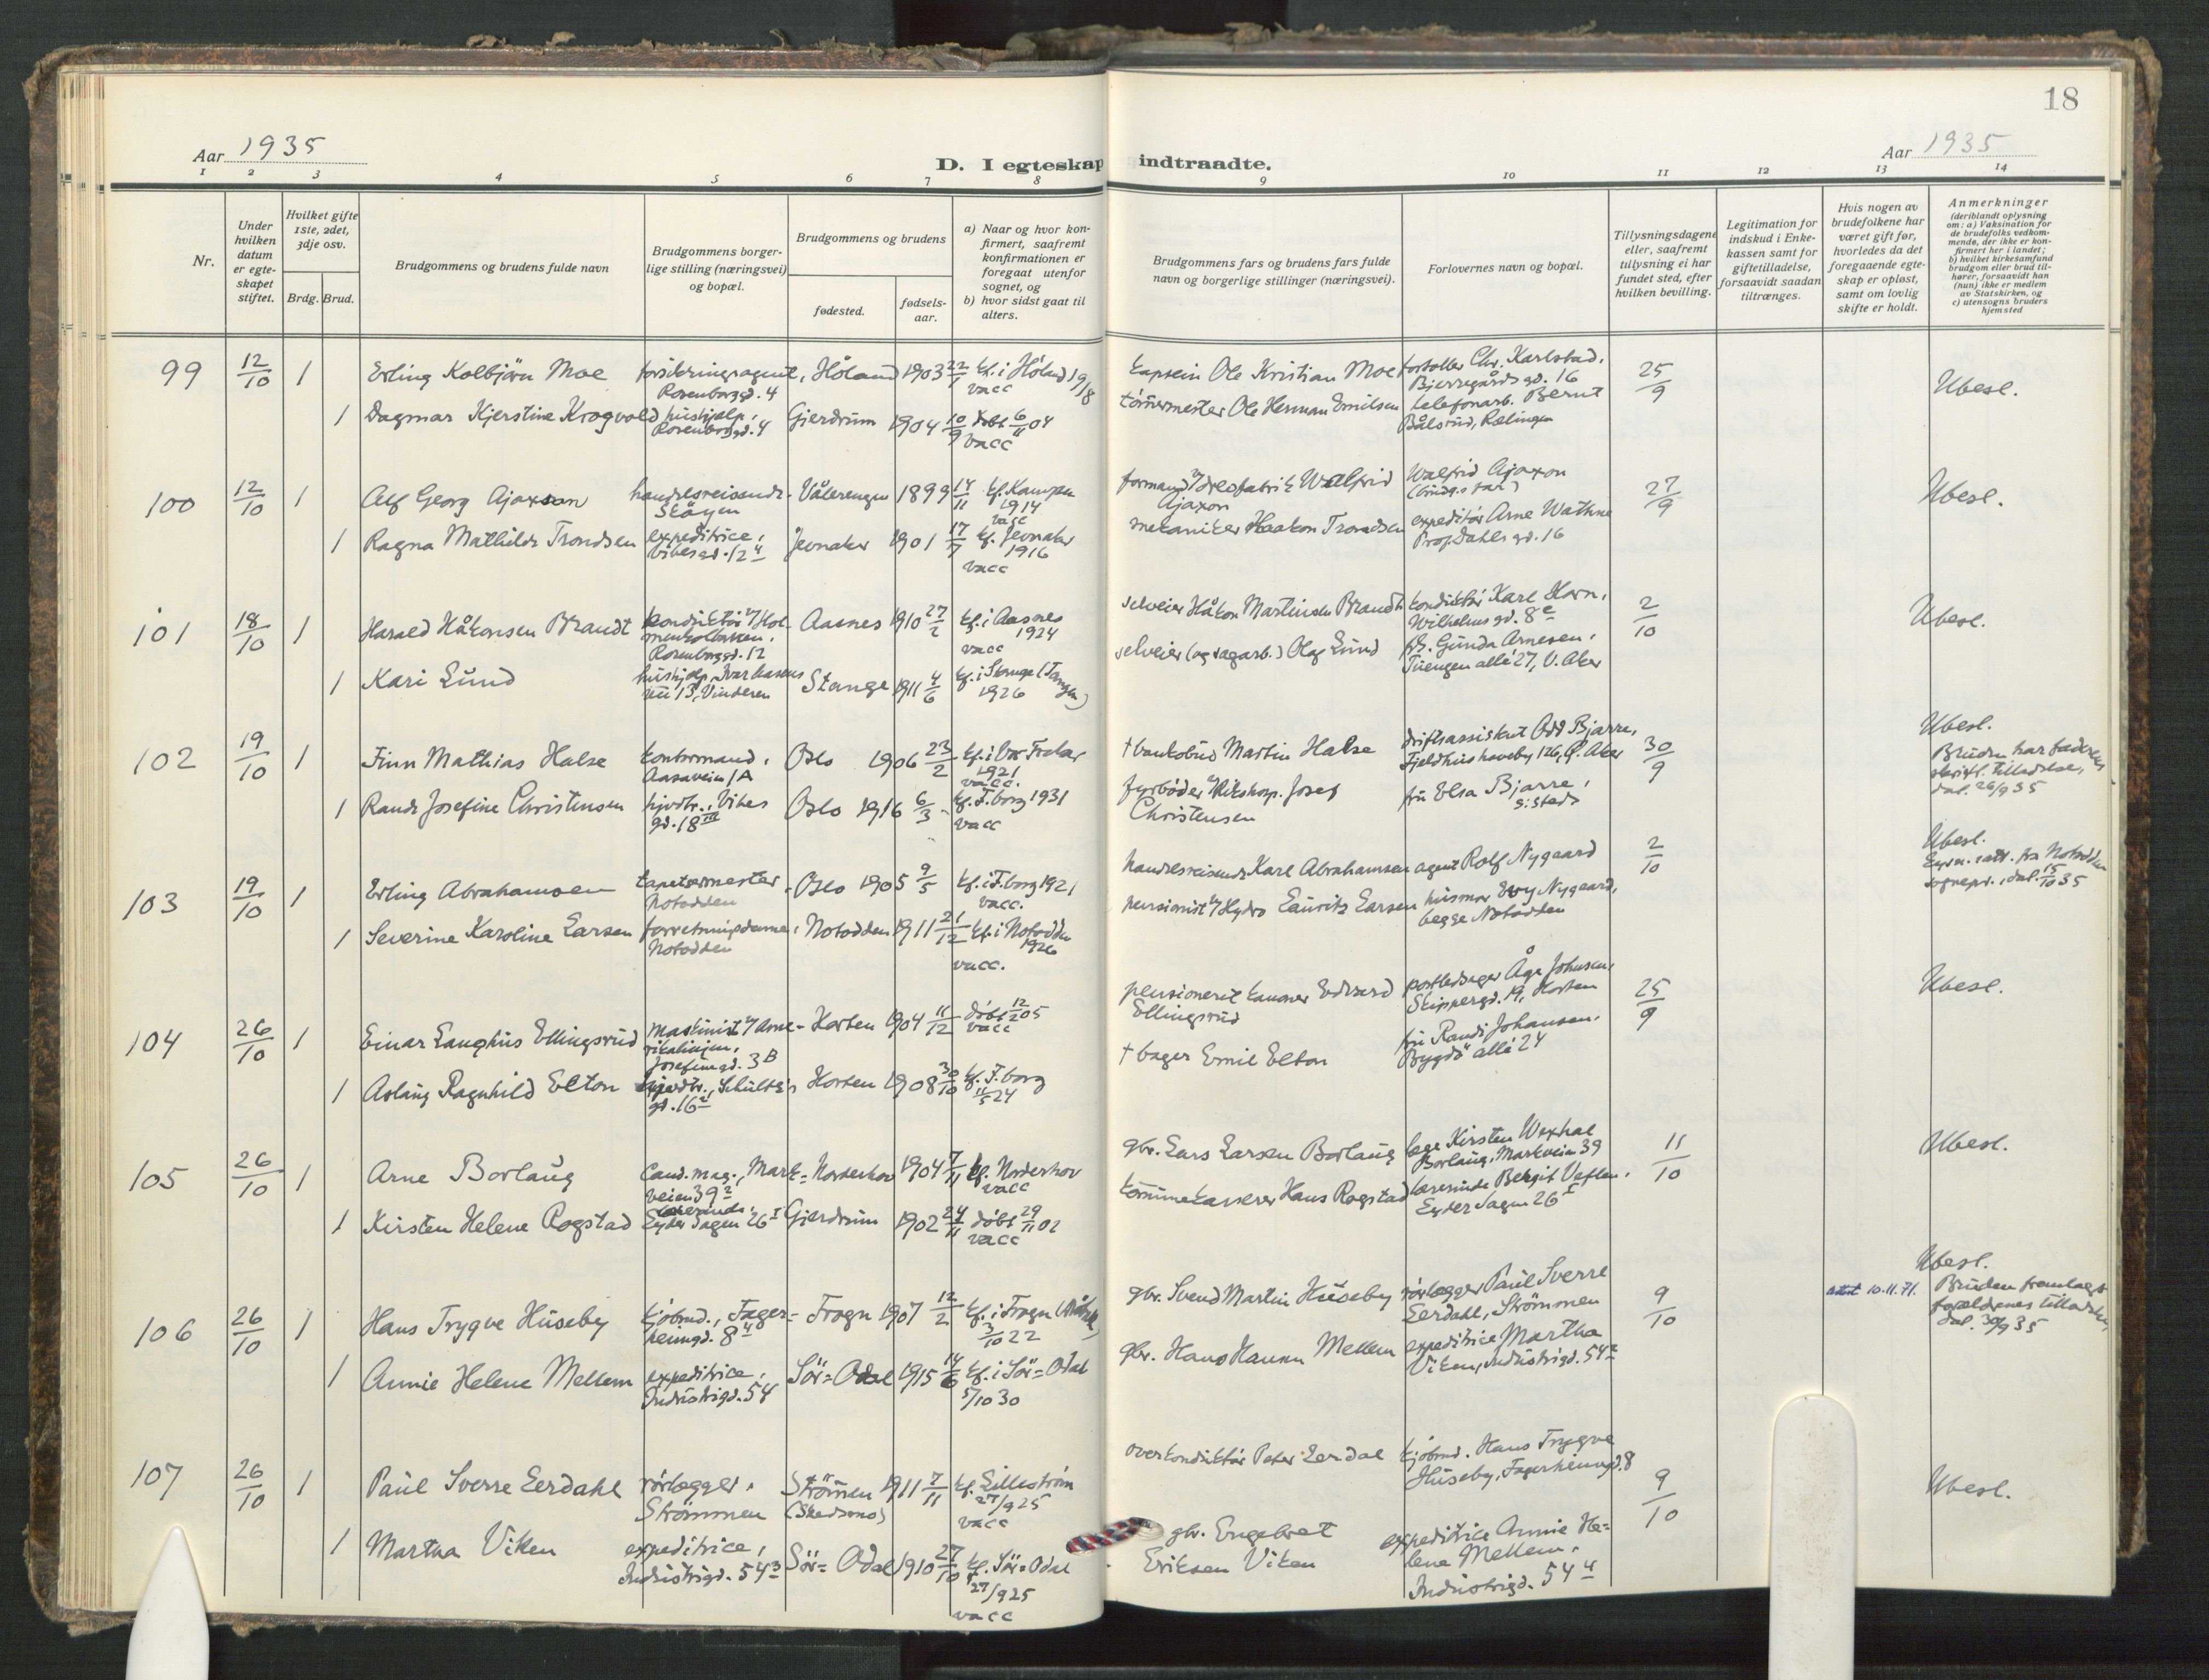 18
Aar 1935
D. I egteskap indtraadte.
Aar 1935
1 2 3 4 5 6 7 8 9 10 11 12 13 14
Nr.
Under hvilken datum er egteskapet stiftet.
Hvilket gifte 1ste, 2det, 3dje osv.
Brdg. Brud.
Brudgommens og brudens fulde navn
Brudgommens borgerlige stilling (næringsvei) og bopæl.
Brudgommens og brudens
fødested.
fødselsaar.
a) Naar og hvor konfirmert, saafremt konfirmationen er foregaat utenfor sognet, og
b) hvor sidst gaat til alters.
Brudgommens fars og brudens fars fulde navn og borgerlige stillinger (næringsvei).
Forlovernes navn og bopæl.
Tillysningsdagene eller, saafremt tillysning ei har fundet sted, efter hvilken bevilling.
Legitimation for indskud i Enkekassen samt for giftetilladelse, forsaavidt saadan tiltrænges.
Hvis nogen av brudefolkene har været gift før, hvorledes da det foregaaende egteskap er opløst, samt om lovlig skifte er holdt.
Anmerkninger
(deriblandt oplysning om: a) Vaksination for de brudefolks vedkommende, der ikke er konfirmert her i landet;
b) hvilket kirkesamfund brudgom eller brud tilhører, forsaavidt han (hun) ikke er medlem av Statskirken, og
c) utensogns bruders hjemsted
99 12/10 1 Erling Kolbjörn Moe forsikringsagent, Rosenborgd. 4 Höland 1903 22/1 kf. i Höland 19/8 vacc
kaptein Ole Kristian Moe Chr. Karlstad, Bjerregårdsgd. 16 25/9 Ubesl.
1 Dagmar Kjerstine Krogvold hushjelp, Rosenborgd. 4 Gjerdrum 1904 10/9 döbt 6/11 04 vacc
tömmermester Ole Herman Emilsen telefonarb. Bernt Bålsrud, Rælingen
100 12/10 1 Alf Georg Ajaxson handelsreisende Sköyen Vålerengen 1899 14/11 kf. Kampen 1914 vacc
formand Walfrid Ajaxon Walfrid Ajaxon (brudg.s far) 27/9 Ubesl.
1 Ragna Mathilde Trondsen expeditrice, Vibesgd. 12 4 Jevnaker 1901 17/7 kf. Jevnaker 1916 vacc
mekaniker Haakon Trondsen expeditör Arne Wathne Prof. Dahls gd. 16
101 18/10 1 Harald Håkonsen Brandt konduktör v/Holmenkolbanen, Rosenborgd. 12 Aasnes 1910 27/2 kf. i Aasnes 1924 vacc
selveier Håkon Martinsen Brandt konduktör Karl Horn, Wilhelmsgd. 8 c 2/10 Ubesl.
1 Kari Lund hushjelp, Ivar Aasens vei 13, Vinderen Stange 1911 4/6 kf. i Stange (Tangen) 1926
selveier (og sagarb.) Olaf Lund Fr. Gunda Arnesen, Tuengen allé 27, V. Aker
102 19/10 1 Finn Mathias Halse kontormand, Aasaveien 1A Oslo 1906 23/2 kf. i V. Frelser 1921 vacc.
† bankbud Martin Halse driftsassistent Odd Bjarre, Fjeldhus haveby 126, Ø. Aker 30/9
Ubesl. Bruden har faderens skriftl. tilladelse, dat. 26/9 35
1 Randi Josefine Christensen hjvdtr., Vibes gd. 18 III Oslo 1916 6/3 kf. F.borg 1931 vacc
fyrböder v/Rikshosp. Josef Christensen fru Elsa Bjarre, s. steds
103 19/10 1 Erling Abrahamsen tapetsermester Notodden Oslo 1905 9/5 kf. i F.borg 1921 vacc.
handelsreisende Karl Abrahamsen agent Rolf Nygaard 2/10
Ubesl. Lysn. att. fra Notodden sognepr., dat. 15/10 35
1 Severine Karoline Larsen forretningsdame, Notodden Notodden 1911 21/12 kf. i Notodden 1926 vacc.
pensionist v/Hydro Lauritz Larsen husmor Evy Nygaard, begge Notodden
104 26/10 1 Einar Langhus Ellingsrud maskinist v/Amerikalinjen, Josefinegd. 3 B Horten 1904 11/12 döbt 12/2 05 vacc
pensionert kanoner Edvard Ellingsrud postbedsager Åge Johnsen, Skippergd. 19, Horten 25/9 Ubesl.
1 Aslaug Ragnhild Elton hjvdtr., Schultz's gd. 16 2 Horten 1908 30/10 kf. F.borg 11/5 24
† bager Emil Elton fru Randi Johansen, Bygdö allé 24
105 26/10 1 Arne Borlaug Cand. mag., Markveien 39 2 Norderhov 1904 7/11 kf. Norderhov vacc
gbr. Lars Larsen Borlaug Kirsten Wexhal Borlaug, Markveien 39 11/10 Ubesl.
1 Kirsten Helene Rogstad lærerinde, Eyder Sagen 26 I Gjerdrum 1902 24/11 döbt 29/11 02 vacc
kommunekasserer Hans Rogstad lærerinde Bergit Veflen, Eyder Sagen 26 I
106 26/10 1 Hans Trygve Huseby kjöbmd., Fagerheimgd. 8 4 Frogn 1907 12/2 kf. i Frogn 3/10 22
gbr. Svend Martin Huseby rörlegger Paul Sverre Lerdahl, Strömmen 9/10 attest 10.11.71.
Ubesl. Bruden fremlagt forældrenes tilladelse, dat. 30/9 35
1 Annie Helene Mellem expeditrice, Industrigd. 54 Sör-Odal 1915 14/6 kf. i Sör-Odal 5/10 30
gbr. Hans Hansen Mellem expeditrice Martha Viken, Industrigd. 54 2
107 26/10 1 Paul Sverre Lerdahl rörlegger, Strömmen Strömmen (Skedsmo) 1911 7/11 kf. Lilleström 27/9 25 vacc
overkonduktör Peter Lerdal kjöbmd. Hans Trygve Huseby, Fagerheimgd. 8 9/10 Ubesl.
1 Martha Viken expeditrice, Industrigd. 54 3 Sör-Odal 1910 27/10 kf. Sör-Odal 27/9 25 vacc
gbr. Engebret Eriksen Viken expeditrice Annie Helene Mellem, Industrigd. 54 4